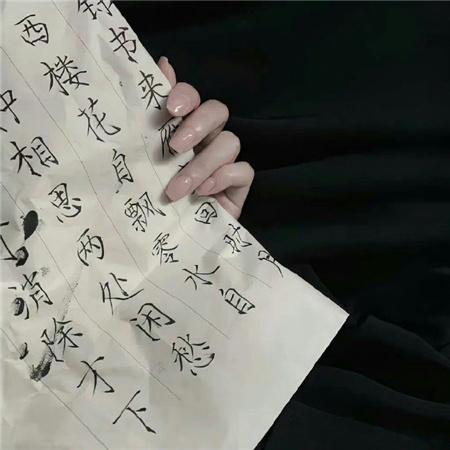 锦书来回时月
西楼花自飘零水自
相思两处闲愁
消除才下